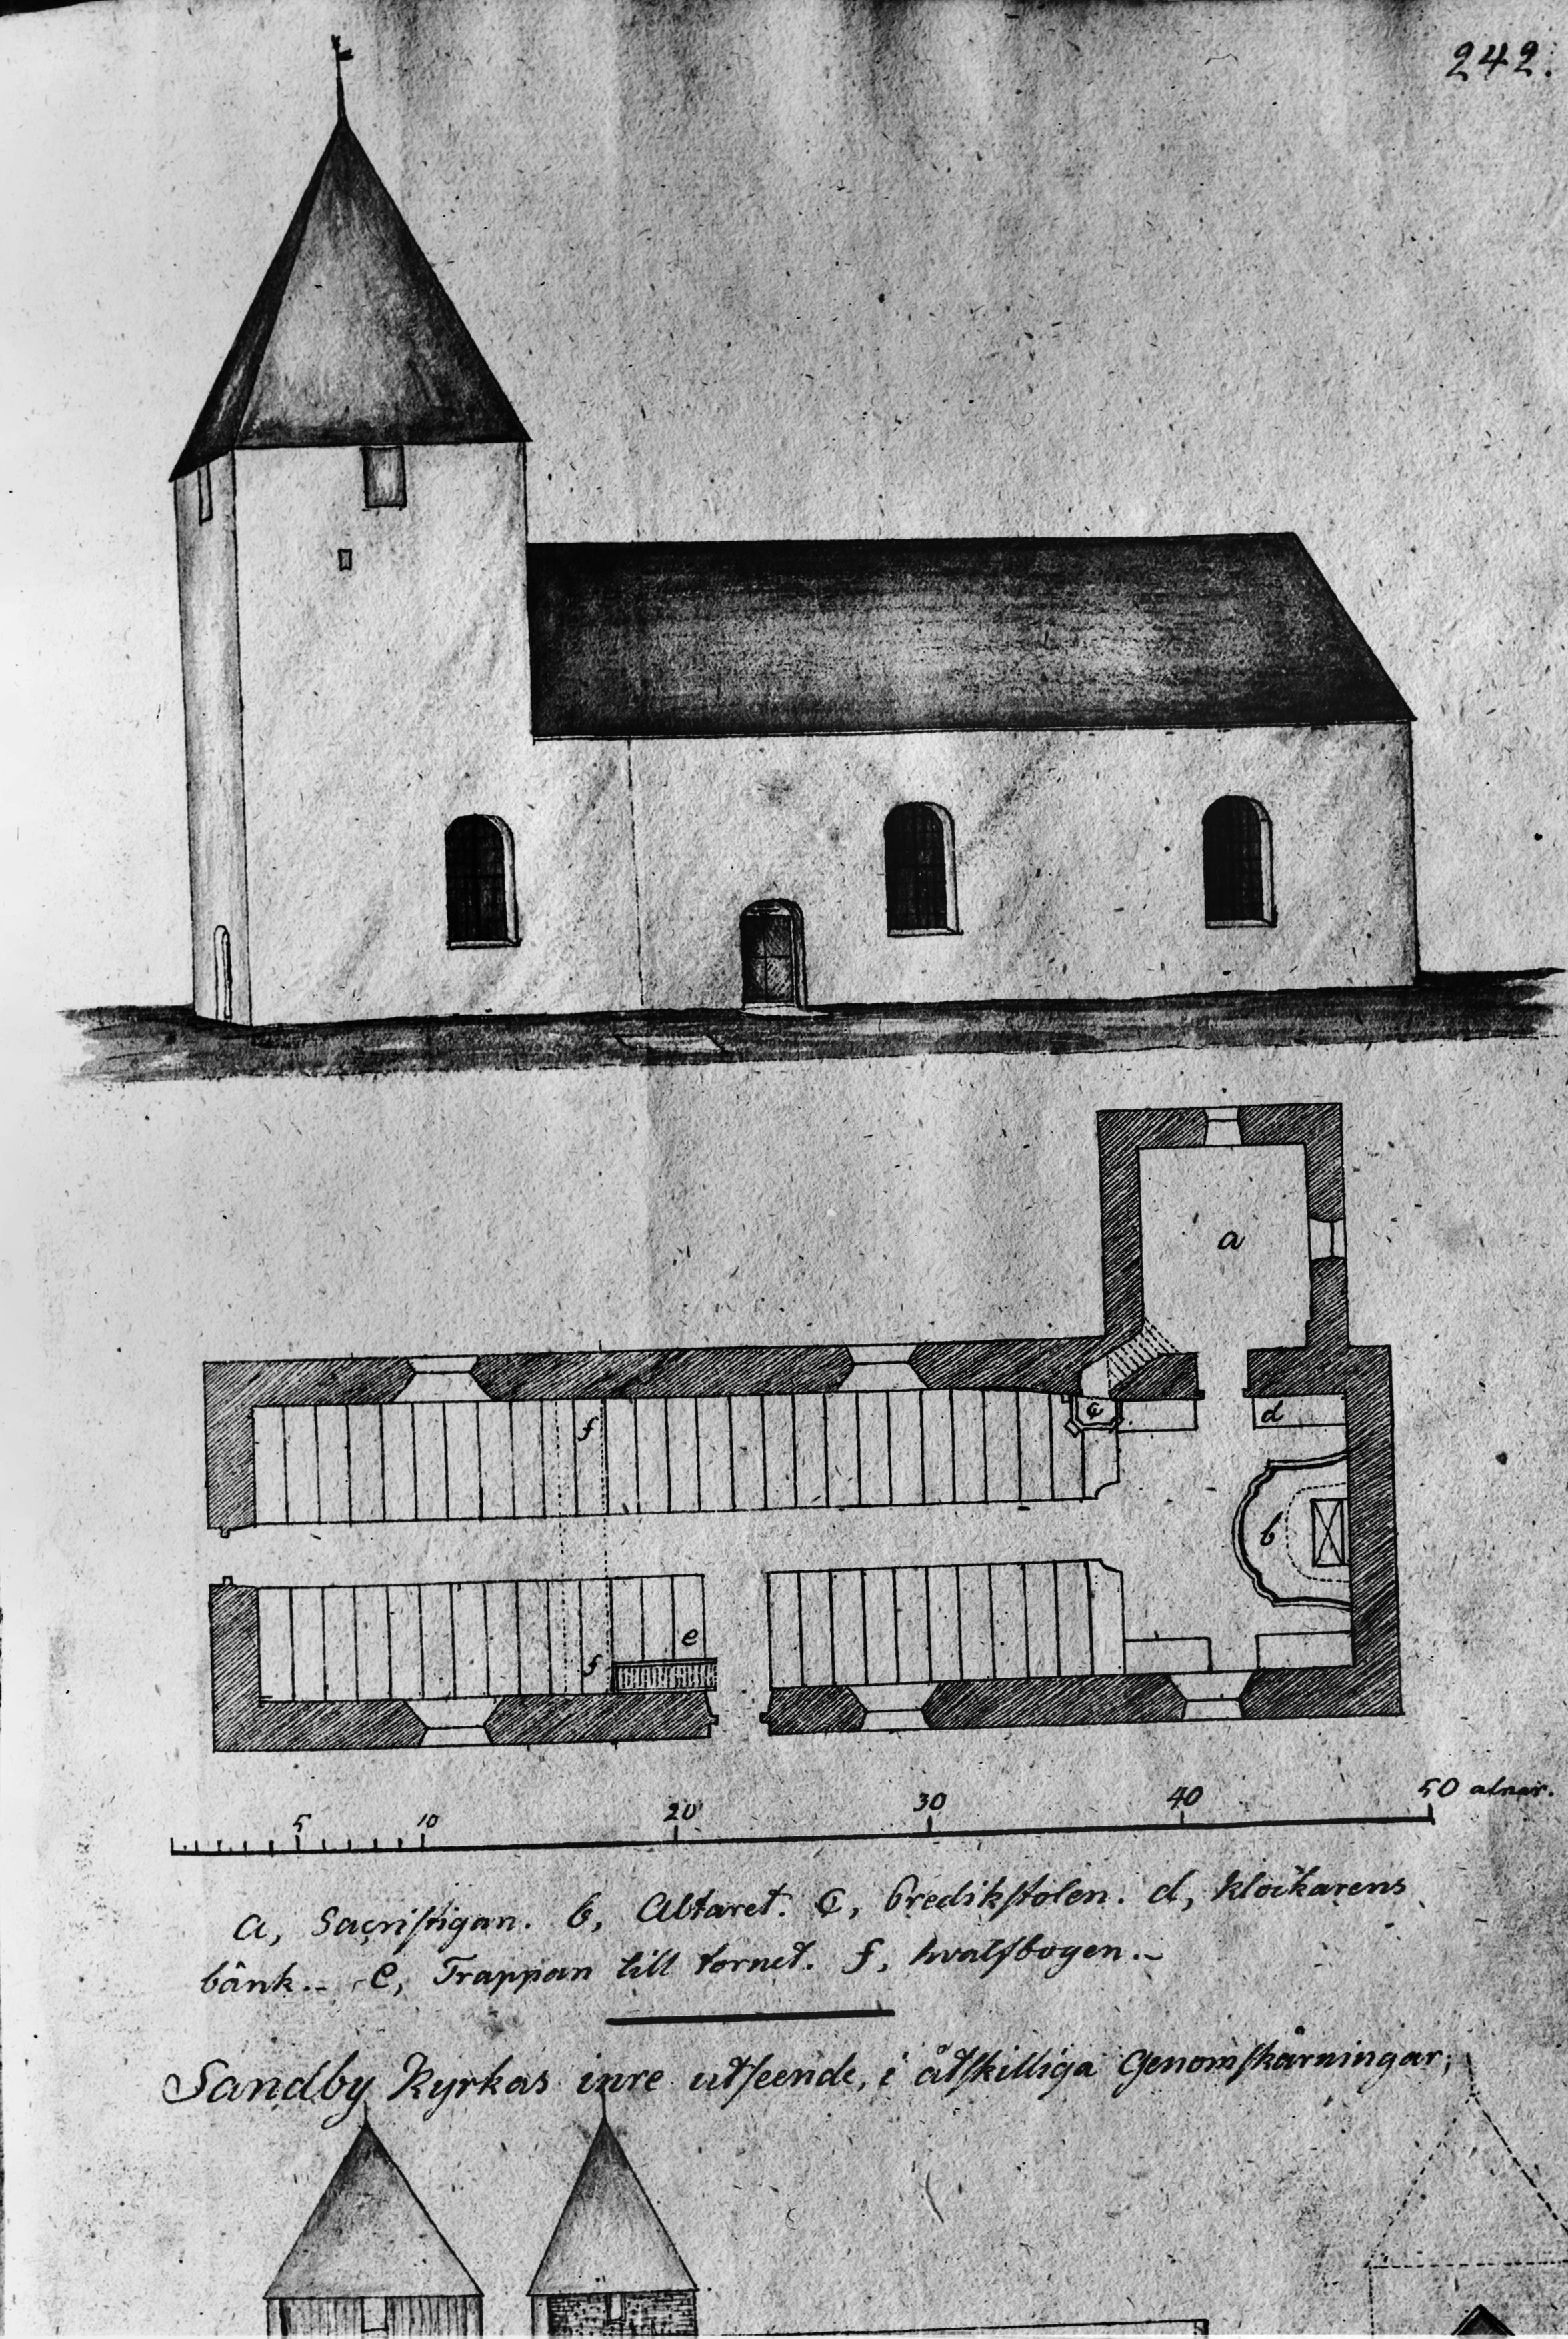 242.
a
f
c
d
b
e
f
5 10 20 30 40 50 alnar.
a, Sacristigan. b, Altaret. c, Predikstolen. d, klockarens
bänk.- e, Trappan till tornet. f, hvalfbogen.-
Sandby Kyrkas inre utseende, i åtskilliga Genomskärningar;